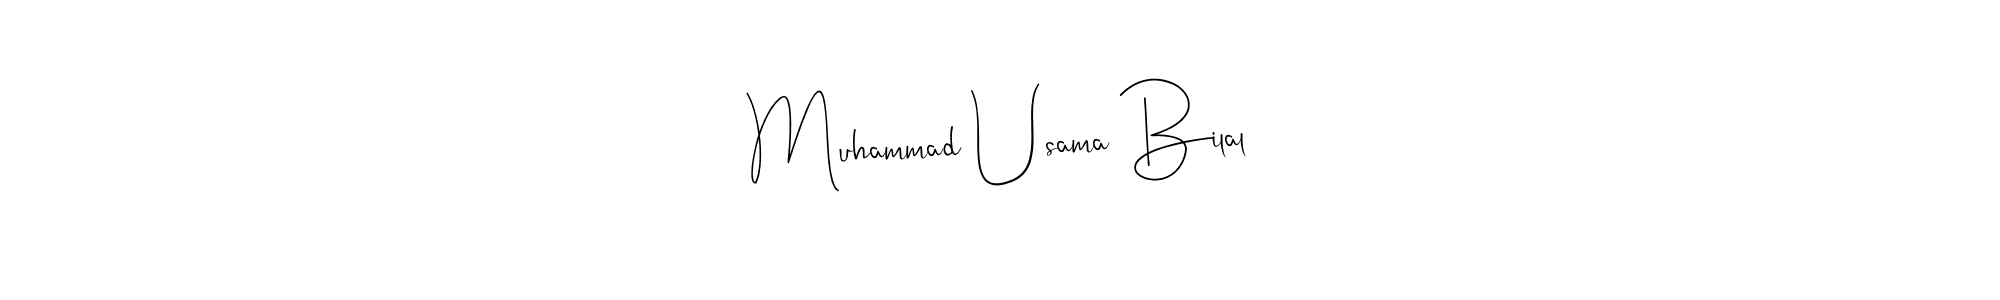 Muhammad Usama Bilal